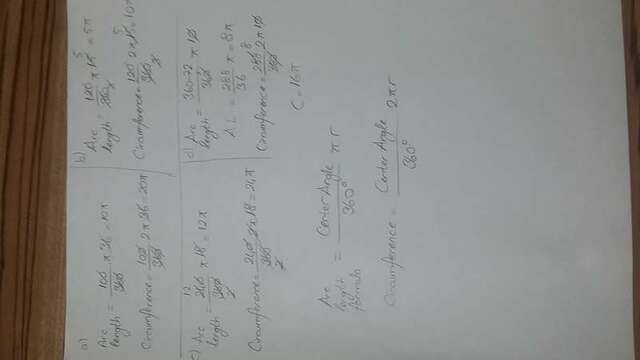 a)
Arc length = 100/360 π 36 = 10π
Circumference = 100/360 2π 36 = 20π
b)
Arc length = 120/360 π 15 = 5π
Circumference = 120/360 2π 15 = 10π
c) Arc length = 240/360 π 18 = 12π
Circumference = 240/360 2π 18 = 24π
d) Arc length = 360-72/360 π 10
AL = 288/36 π = 8π
Circumference = 288/360 2π 10
C = 16π
Arc length formula = Center Angle/360° πr
Circumference = Center Angle/360° 2πr